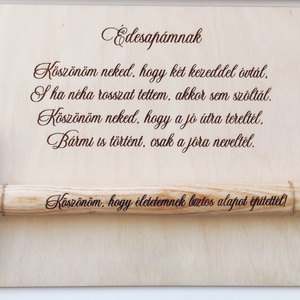 Édesapámnak
Köszönöm neked, hogy két kezeddel óvtál,
S ha néha rosszat tettem, akkor sem szóltál.
Köszönöm neked, hogy a jó útra tereltél,
Bármi is történt, csak a jóra neveltél.
Köszönöm, hogy életemnek biztos alapot építettél!